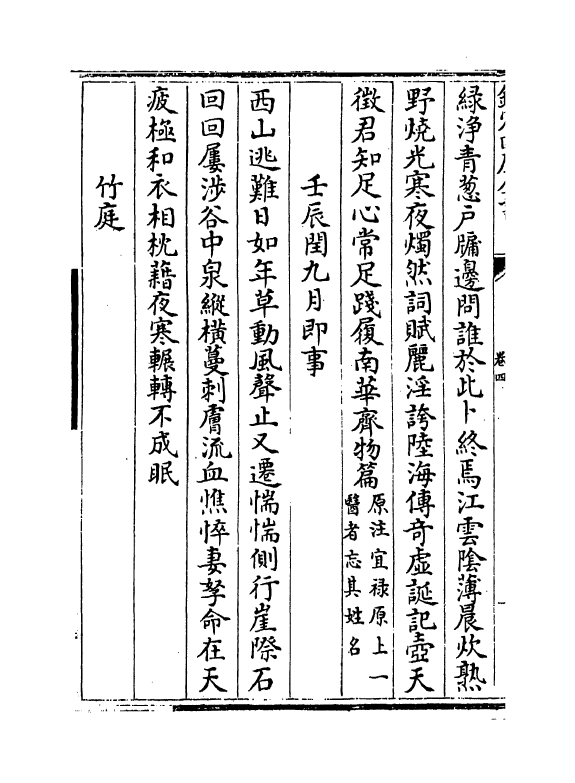 卷四
緑淨青葱戶牖邊問誰於此卜終焉江雲陰薄晨炊熟
野燒光寒夜燭然詞賦麗淫誇陸海傳奇虛誕記壺天
徵君知足心常足踐履南華齊物篇原注宜禄原上一
醫者忘其姓名
壬辰閏九月即事
西山逃難日如年草動風聲止又遷惴惴側行崖際石
回回屢涉谷中泉縱橫蔓刺膚流血憔悴妻孥命在天
疲極和衣相枕藉夜寒輾轉不成眠
竹庭